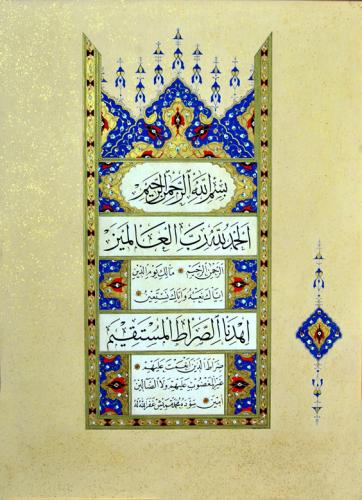 بسم الله الرحمن الرحيم
الحمد لله رب العالمين
الرحمن الرحيم مالك يوم الدين
اياك نعبد واياك نستعين
اهدنا الصراط المستقيم
صراط الذين انعمت عليهم
غير المغضوب عليهم ولا الضالين
امين سوده محمد